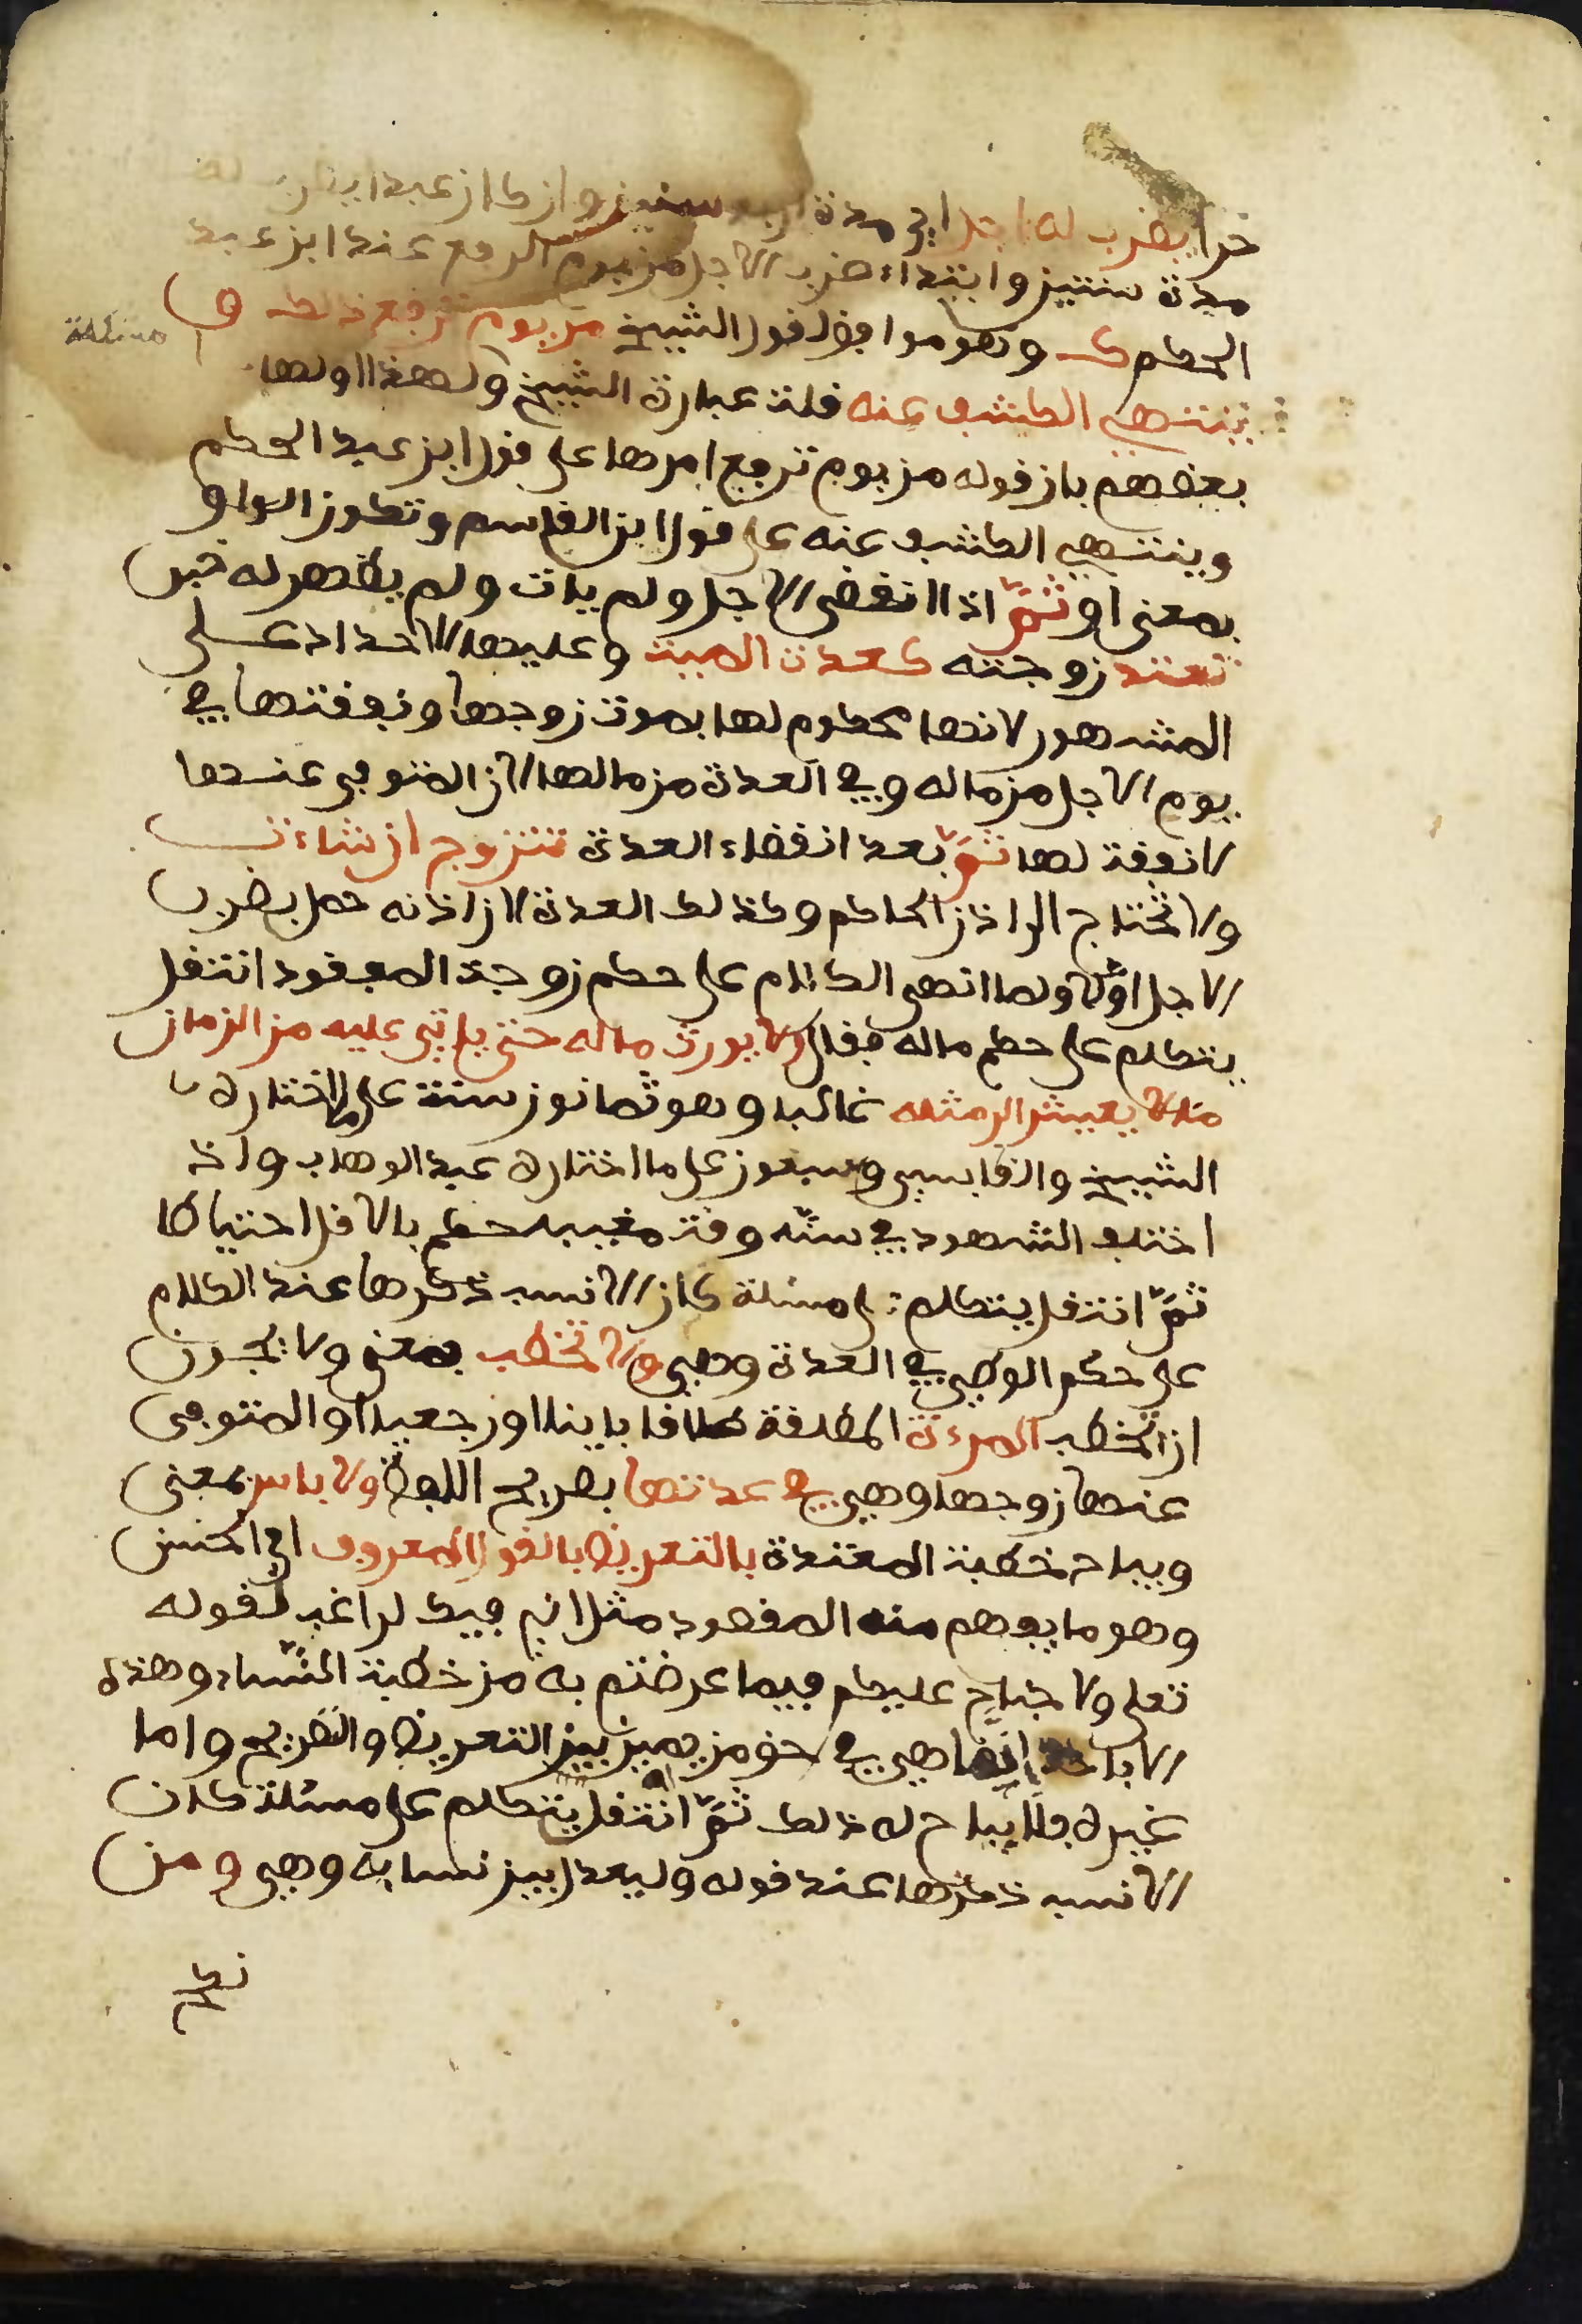 حرا يضرب له اجل اي مدة اربع سنين وان كان عبدا يضرب له
مدة سنتين وابتداء ضرب الاجل من يوم الرفع عند ابن عبد
الحكم وهو موافق لقول الشيخ من يوم ترفع ذلك و
ينتهي الكشف عنه قلت عبارة الشيخ ولهذا اولها
بعضهم بان قوله من يوم ترفع امرها على قول ابن عبد الحكم
وينتهي الكشف عنه على قول ابن القاسم وتكون الواو
بمعنى او ثمّ اذا انقضى الاجل ولم يات ولم يظهر له خبر
تعتد زوجته كعدة الميت وعليها الاحداد على
المشهور لانها محكوم لها بموت زوجها ونفقتها في
يوم الاجل من ماله وفي العدة من مالها لان المتوفى عنها
لا نفقة لها ثمّ بعد انقضاء العدة تتزوج ان شاءت
ولا تحتاج الى اذن الحاكم وكذلك العدة لان اذنه حصل بضرب
الاجل اوّلا ولما انهى الكلام على حكم زوجة المفقود انتقل
يتكلم على حكم ماله فقال ولا يورث ماله حتى ياتي عليه من الزمان
ما لا يعيش الى مثله غالبا وهو ثمانون سنة على ما اختاره
الشيخ والقابسي وسبعون على ما اختاره عبد الوهاب واذ
اختلف الشهود في سنّه وقت مغيبه حكم بالاقل احتياطا
ثمّ انتقل يتكلم على مسئلة كان الانسب ذكرها عند الكلام
على حكم الوطي في العدة وهي ولا تخطب بمعنى ولا يجوز
ان تخطب المرءة المطلقة طلاقا باينا او رجعيا او المتوفى
عنها زوجها وهي في عدتها بصريح اللفظ ولا باس بمعنى
ويباح خطبة المعتدة بالتعريض بالقول المعروف اي الحسن
وهو ما يفهم منه المقصود مثل اني فيك لراغب لقوله
تعلى ولا جناح عليكم فيما عرضتم به من خطبة النّساء وهذه
الاباحة انما هي في حق من يميز بين التعريض والتصريح واما
غيره فلا يباح له ذلك ثمّ انتقل يتكلم على مسئلة كان
الانسب ذكرها عند قوله وليعدل بين نسايه وهي ومن
نكح
مسئلة